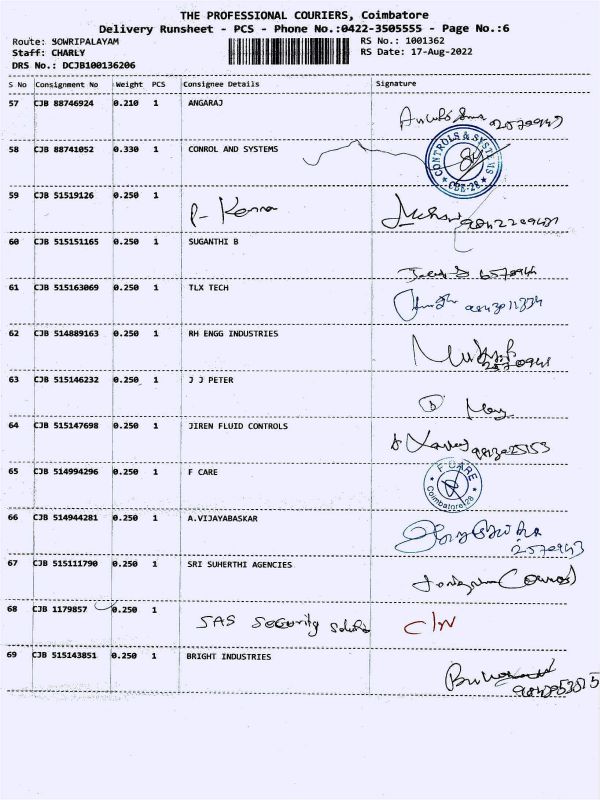 THE PROFESSIONAL COURIERS, Coimbatore
Delivery Runsheet - PCS - Phone No.:0422-3505555 - Page No.:6
Route: SOWRIPALAYAM
RS No.: 1001362
Staff: CHARLY
RS Date: 17-Aug-2022
DRS No.: DCJB100136206
S No Consignment No Weight PCS Consignee Details Signature
57 CJB 88746924 0.210 1 ANGARAJ
58 CJB 88741052 0.330 1 CONROL AND SYSTEMS
CONTROLS & SYSTEMS
CBE-28
59 CJB 51519126 0.250 1
60 CJB 515151165 0.250 1 SUGANTHI B
61 CJB 515163069 0.250 1 TLX TECH
62 CJB 514889163 0.250 1 RH ENGG INDUSTRIES
63 CJB 515146232 0.250 1 J J PETER
64 CJB 515147698 0.250 1 JIREN FLUID CONTROLS
65 CJB 514994296 0.250 1 F CARE
F CARE
Coimbatore-28
66 CJB 514944281 0.250 1 A.VIJAYABASKAR
67 CJB 515111790 0.250 1 SRI SUHERTHI AGENCIES
68 CJB 1179857 0.250 1 SAS Security
69 CJB 515143851 0.250 1 BRIGHT INDUSTRIES